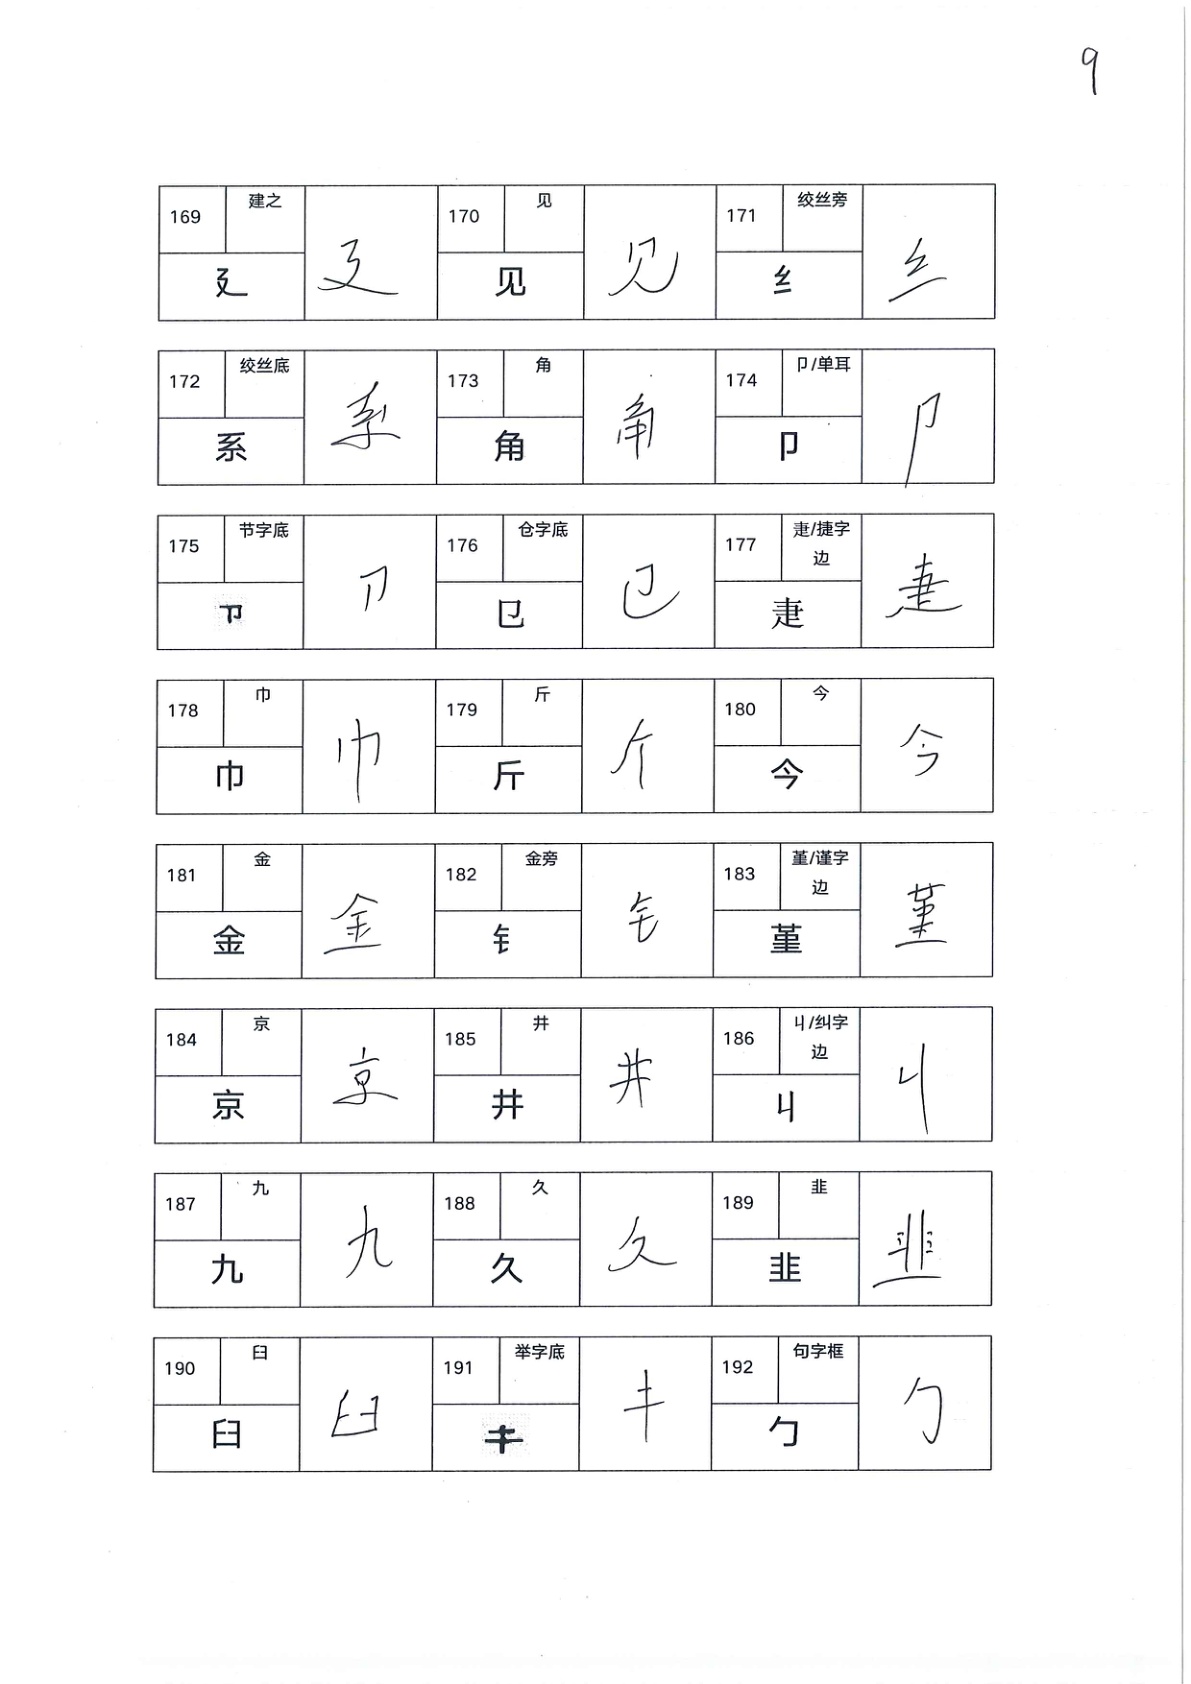 9
169 建之 廴 廴 170 见 见 见 171 绞丝旁 纟 纟
172 绞丝底 系 系 173 角 角 角 174 卩/单耳 卩 卩
175 节字底 176 仓字底 㔾 㔾 177 疌/捷字边 疌 疌
178 巾 巾 巾 179 斤 斤 斤 180 今 今 今
181 金 金 金 182 金旁 钅 钅 183 堇/谨字边 堇 堇
184 京 京 京 185 井 井 井 186 丩/纠字边 丩 丩
187 九 九 九 188 久 久 久 189 韭 韭 韭
190 臼 臼 臼 191 举字底 192 句字框 勹 勹